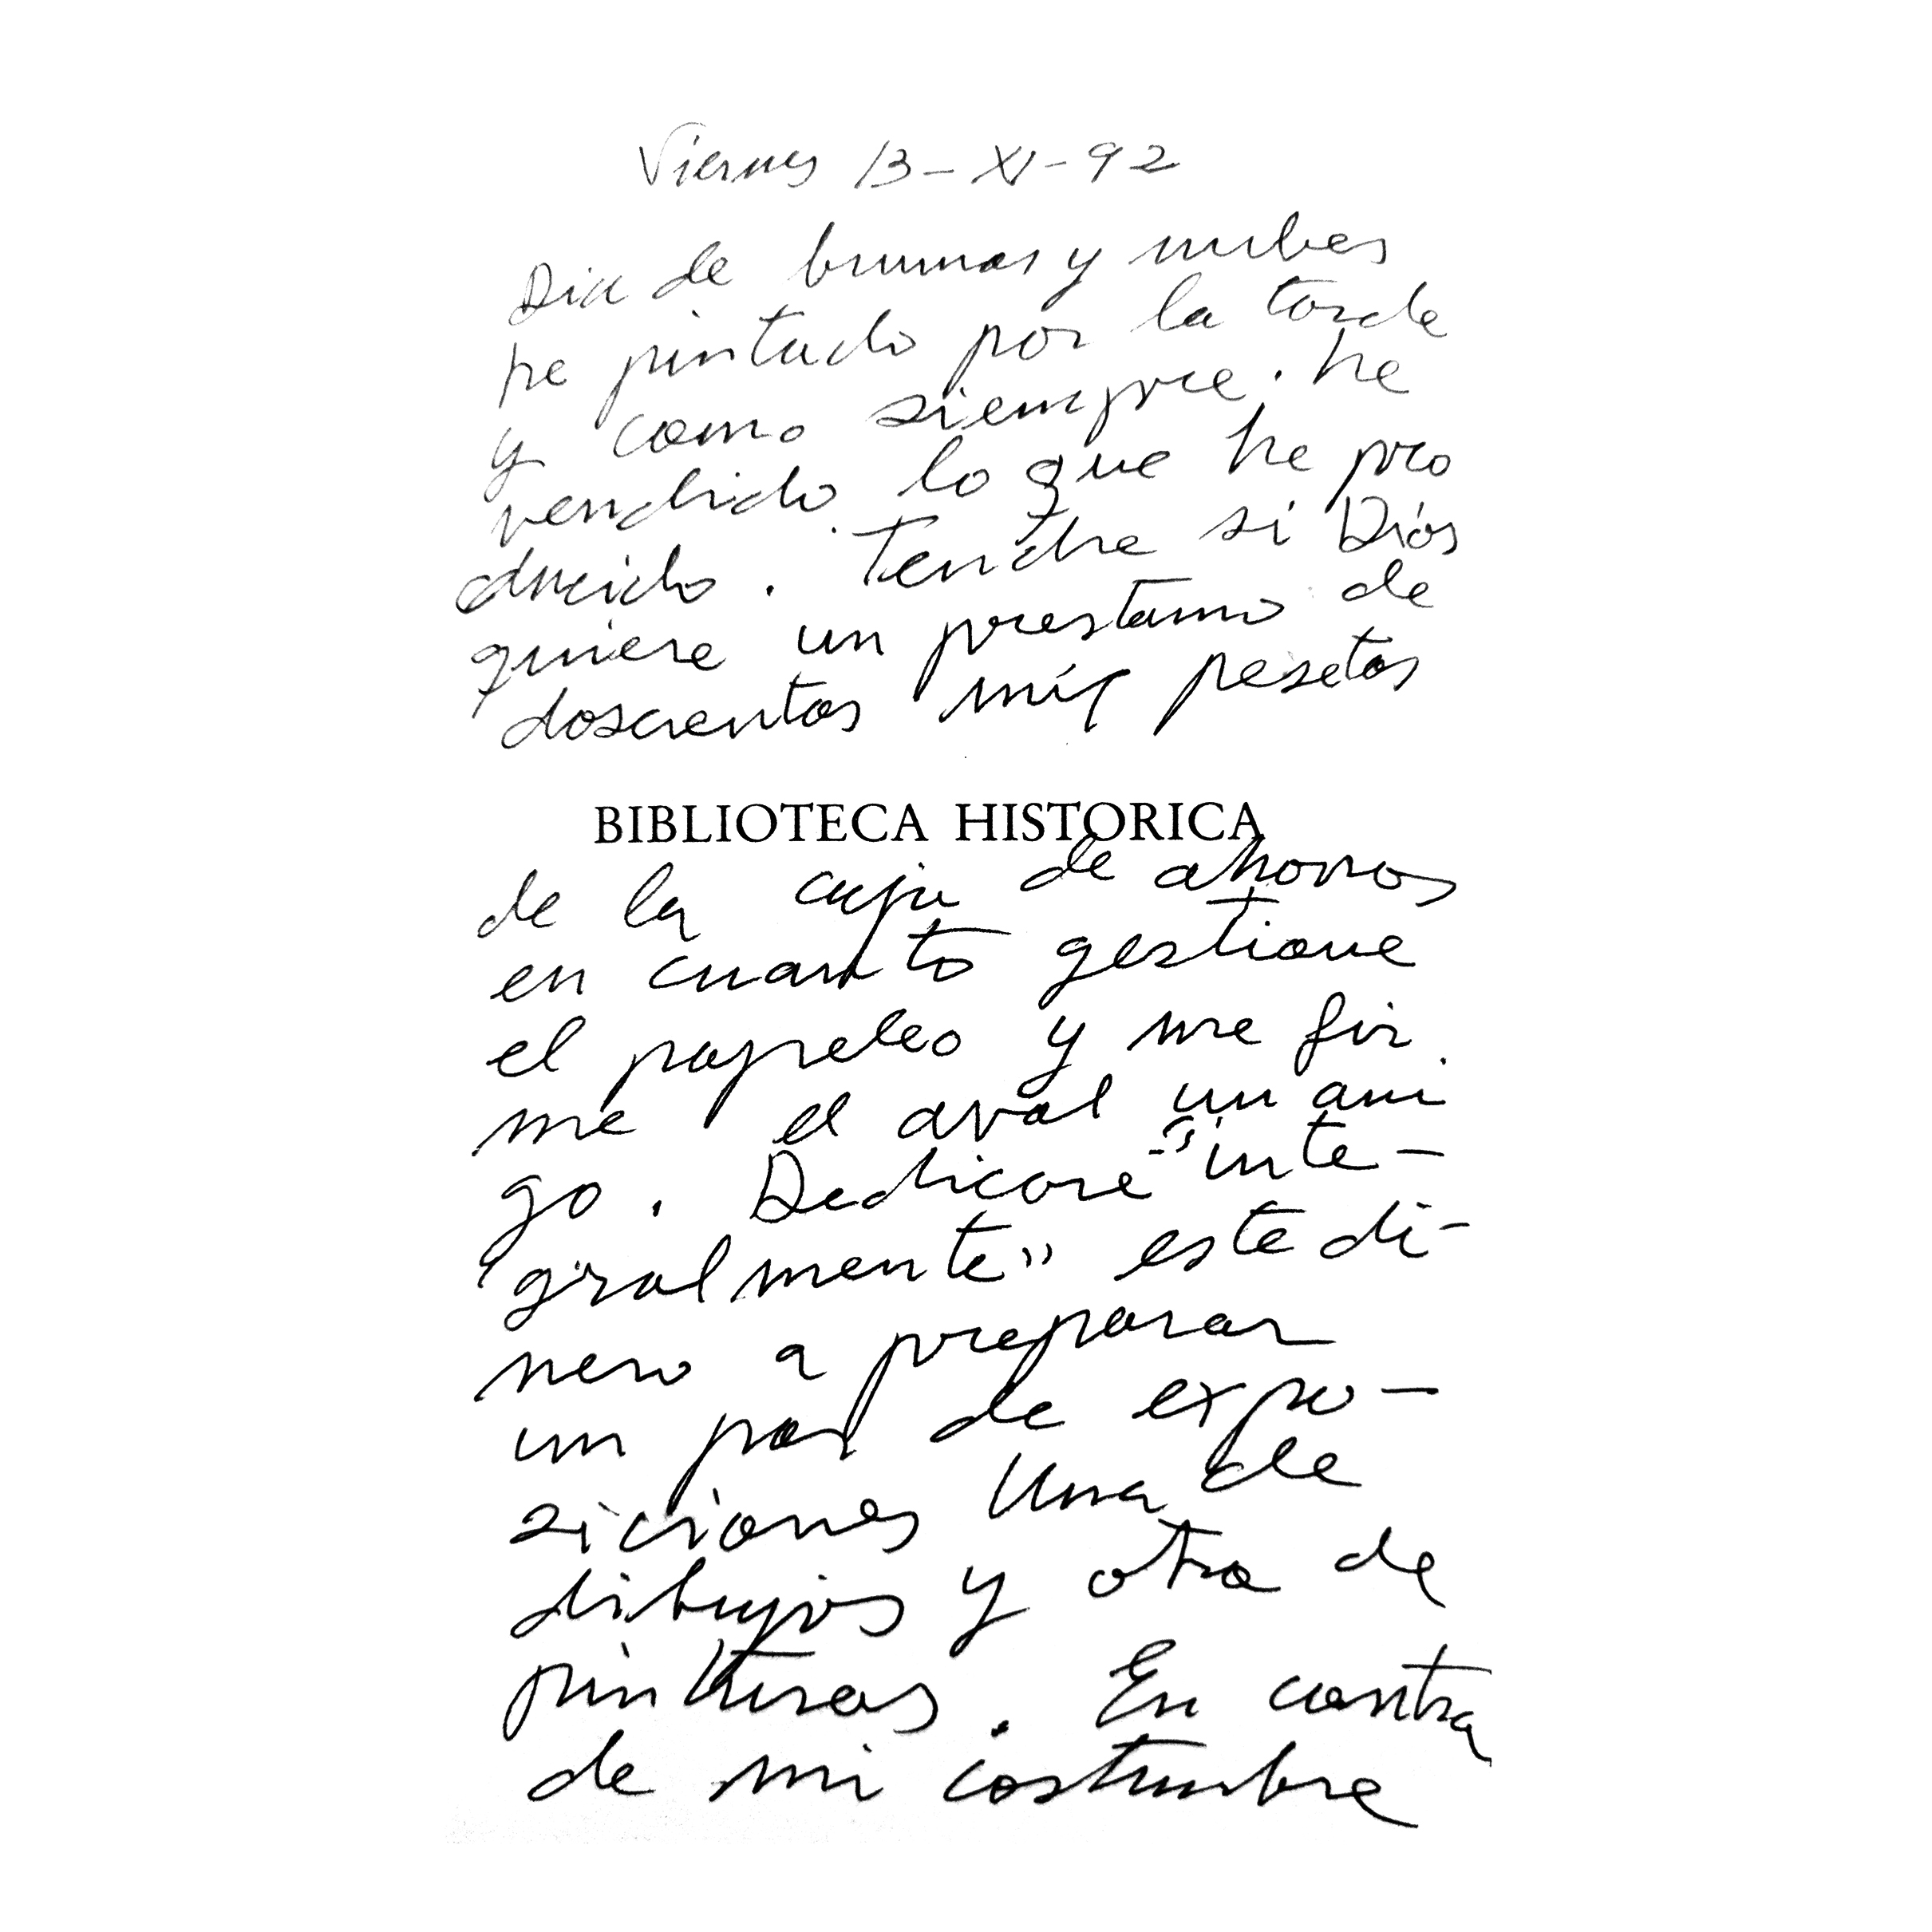 Viernes 13-XI-92
Dia de brumas y nubes
he pintado por la tarde
y como siempre. he
vendido lo que he pro
ducido. Tendre si Dios
quiere un prestamo de
doscientas mil pesetas
BIBLIOTECA HISTORICA
de la caja de ahorros
en cuanto gestione
el papeleo y me fir.
me el aval un ami
go. Dedicaré "inte-
"gralmente" este di-
nero a preparar
un par de expo-
siciones Una de
dibujos y otra de
pinturas. En contra
de mi costumbre